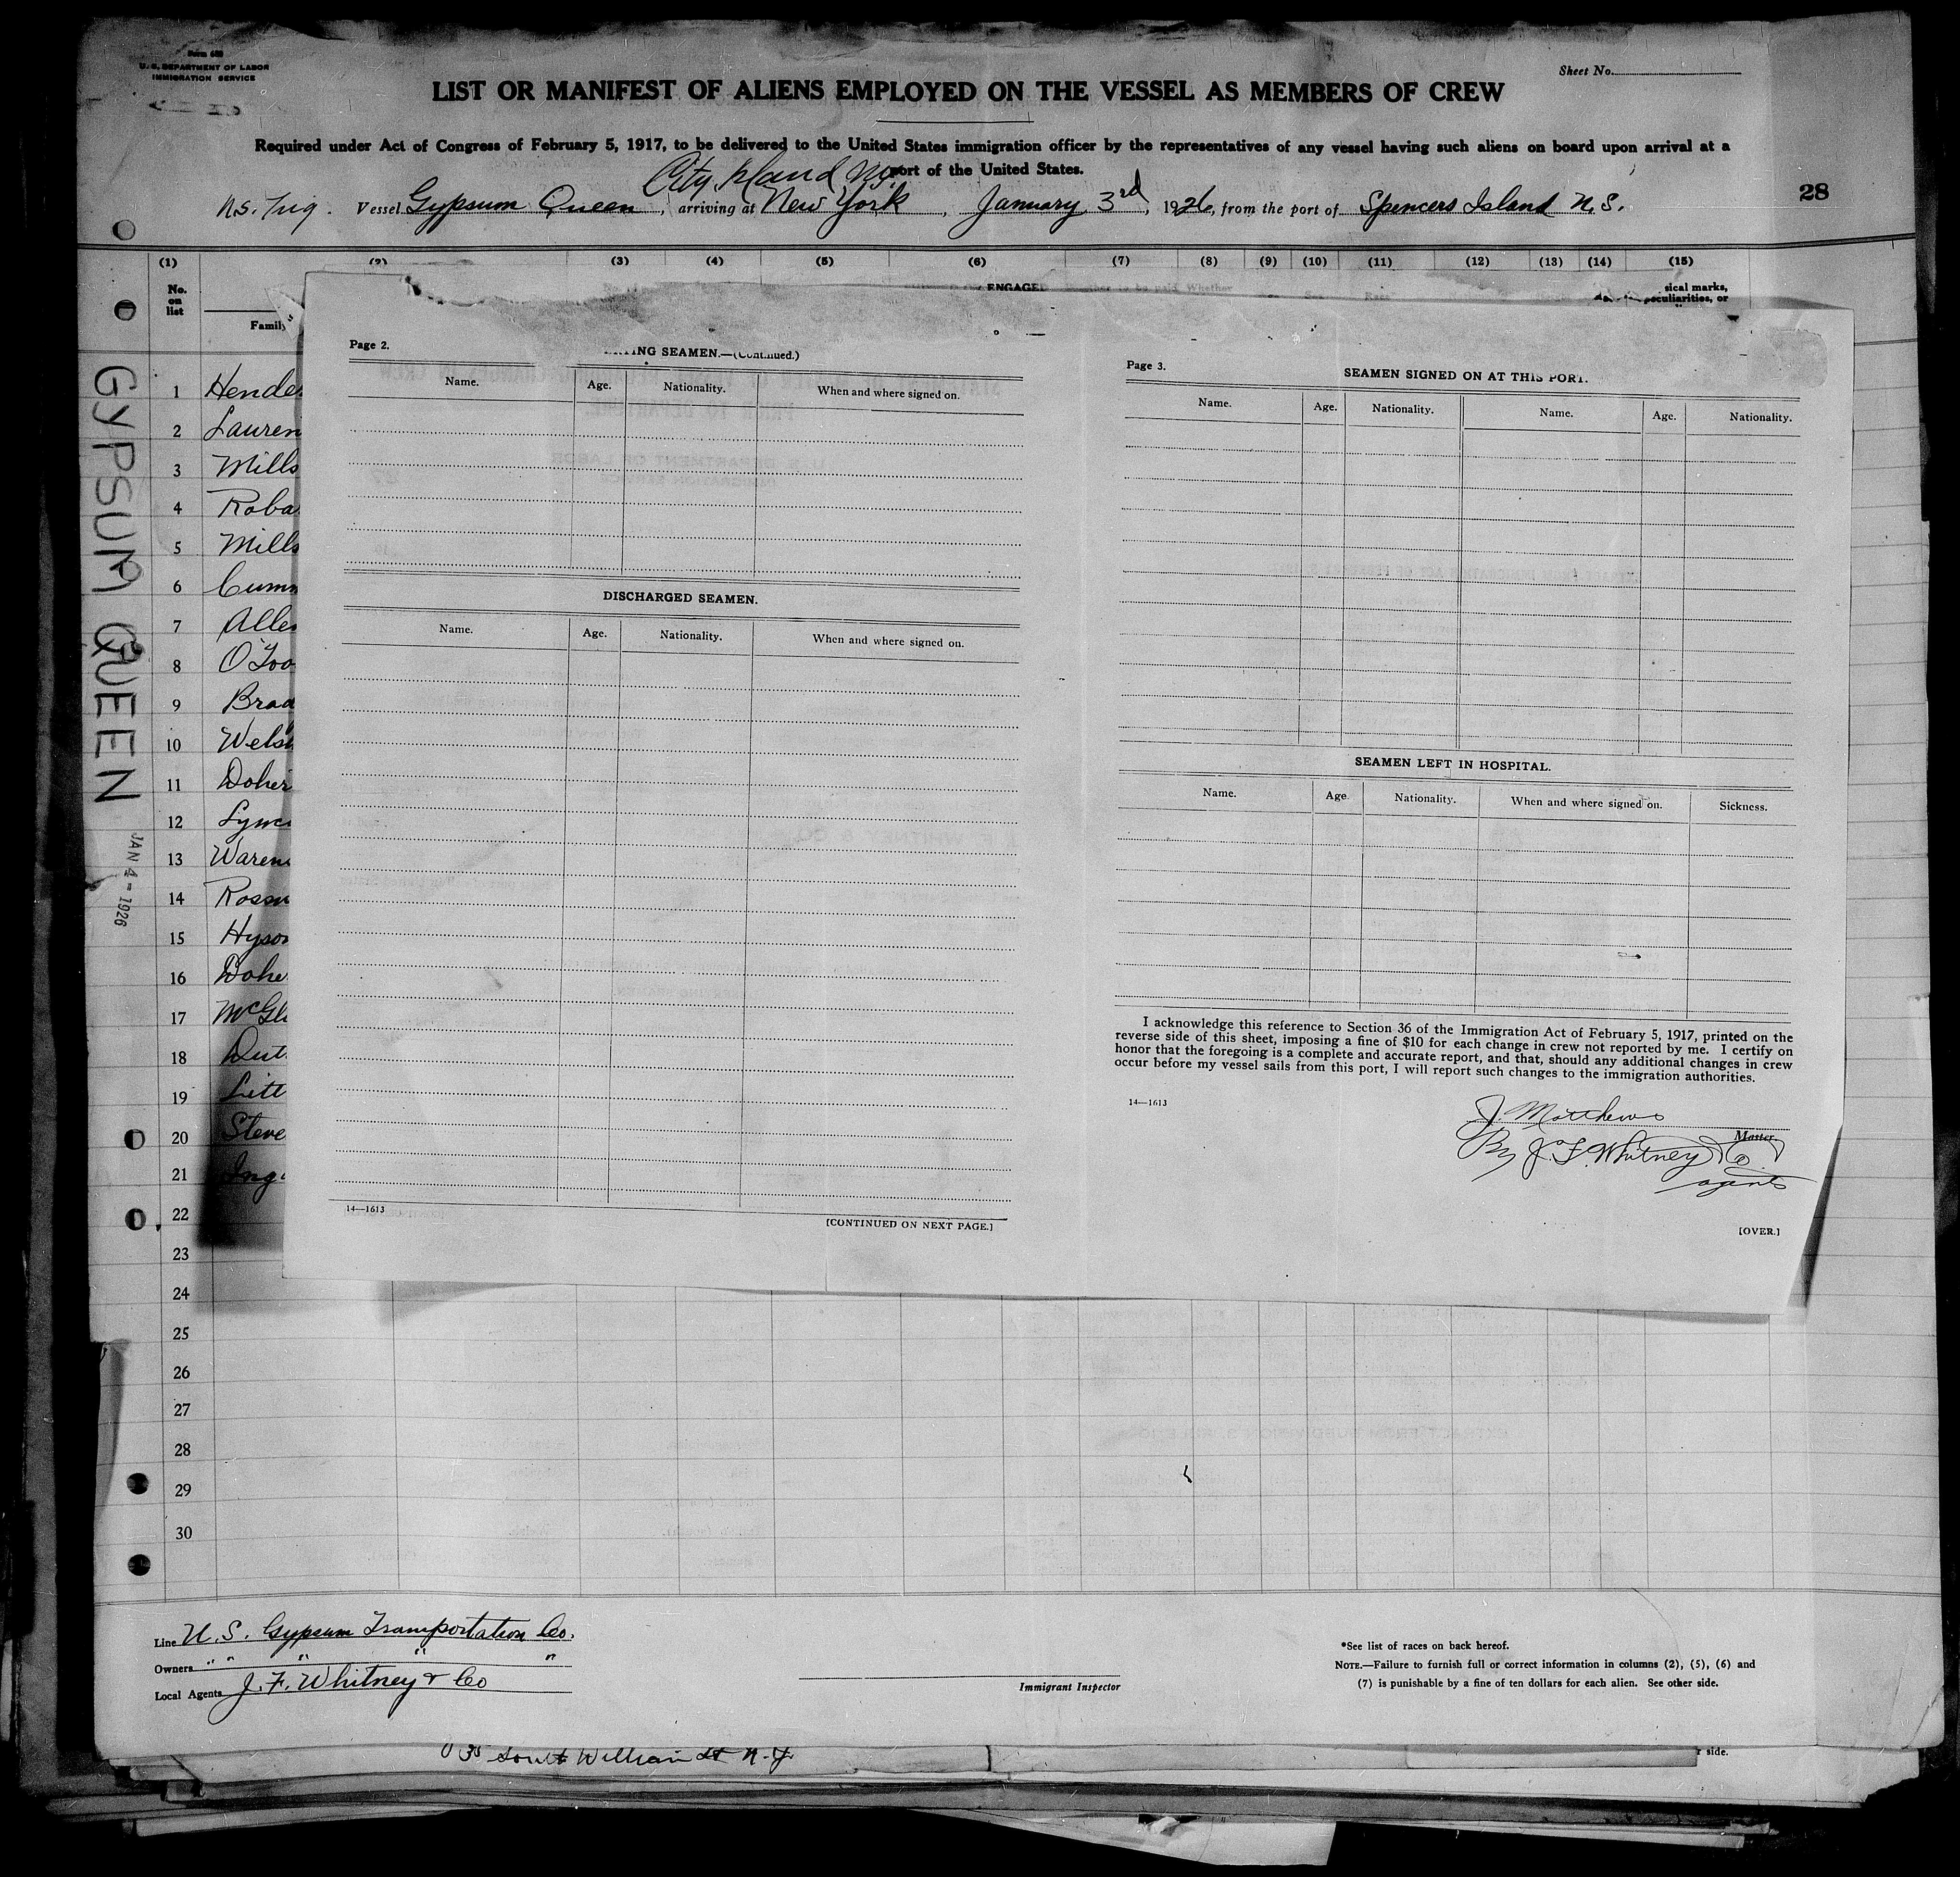 Form 680
U. S. DEPARTMENT OF LABOR
IMMIGRATION SERVICE
Sheet No.
LIST OR MANIFEST OF ALIENS EMPLOYED ON THE VESSEL AS MEMBERS OF CREW
Required under Act of Congress of February 5, 1917, to be delivered to the United States immigration officer by the representatives of any vessel having such aliens on board upon arrival at a
port of the United States.
City Island N.Y.
Vessel Gypsum Queen, arriving at New York, January 3rd, 1926, from the port of Spencers Island N.S.
28
(1) (2) (3) (4) (5) (6) (7) (8) (9) (10) (11) (12) (13) (14) (15)
No. on list
Family
ENGAGED
sical marks,
peculiarities, or
GYPSUM QUEEN
JAN 4 - 1926
1 Hende
2 Lauren
3 Mills
4 Roba
5 Mills
6 Cumm
7 Alle
8 O'Too
9 Brad
10 Wels
11 Doher
12 Lync
13 Waren
14 Rossn
15 Hyson
16 Dohe
17 McGl
18 Dut
19 Litt
20 Steve
21 Ing
22
23
24
25
26
27
28
29
30
Page 2.
SEAMEN.—(Continued.)
Name. Age. Nationality. When and where signed on.
DISCHARGED SEAMEN.
Name. Age. Nationality. When and where signed on.
14—1613
[CONTINUED ON NEXT PAGE.]
Page 3.
SEAMEN SIGNED ON AT THIS PORT.
Name. Age. Nationality. Name. Age. Nationality.
SEAMEN LEFT IN HOSPITAL.
Name. Age. Nationality. When and where signed on. Sickness.
I acknowledge this reference to Section 36 of the Immigration Act of February 5, 1917, printed on the
reverse side of this sheet, imposing a fine of $10 for each change in crew not reported by me. I certify on
honor that the foregoing is a complete and accurate report, and that, should any additional changes in crew
occur before my vessel sails from this port, I will report such changes to the immigration authorities.
14—1613
J. Matthews
Master.
By J. F. Whitney & Co.
agents
[OVER.]
Line U. S. Gypsum Transportation Co.
Owners " " " " "
Local Agents J. F. Whitney & Co
Immigrant Inspector
*See list of races on back hereof.
NOTE.—Failure to furnish full or correct information in columns (2), (5), (6) and
(7) is punishable by a fine of ten dollars for each alien. See other side.
35 South William St N.Y.
r side.